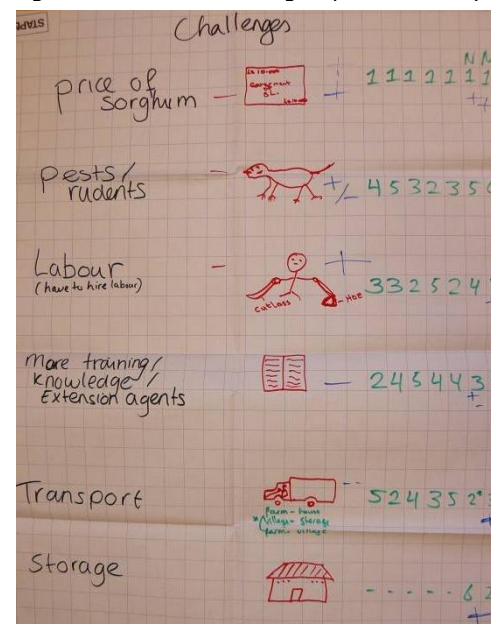 Challenges
N N
Price of
sorghum - + 1 1 1 1 1 1 1
Government
SL.
Pests/
rudents - +/- 4 5 3 2 3 5
Labour - + 3 3 2 5 2 4
(have to hire labour)
cutlass - HOE
More training/
Knowledge/
Extension agents - 2 4 5 4 4 3
Transport -- 5 2 4 3 5 2
Farm - house
* Village - Storage
farm - village
Storage - - - - - 6 2